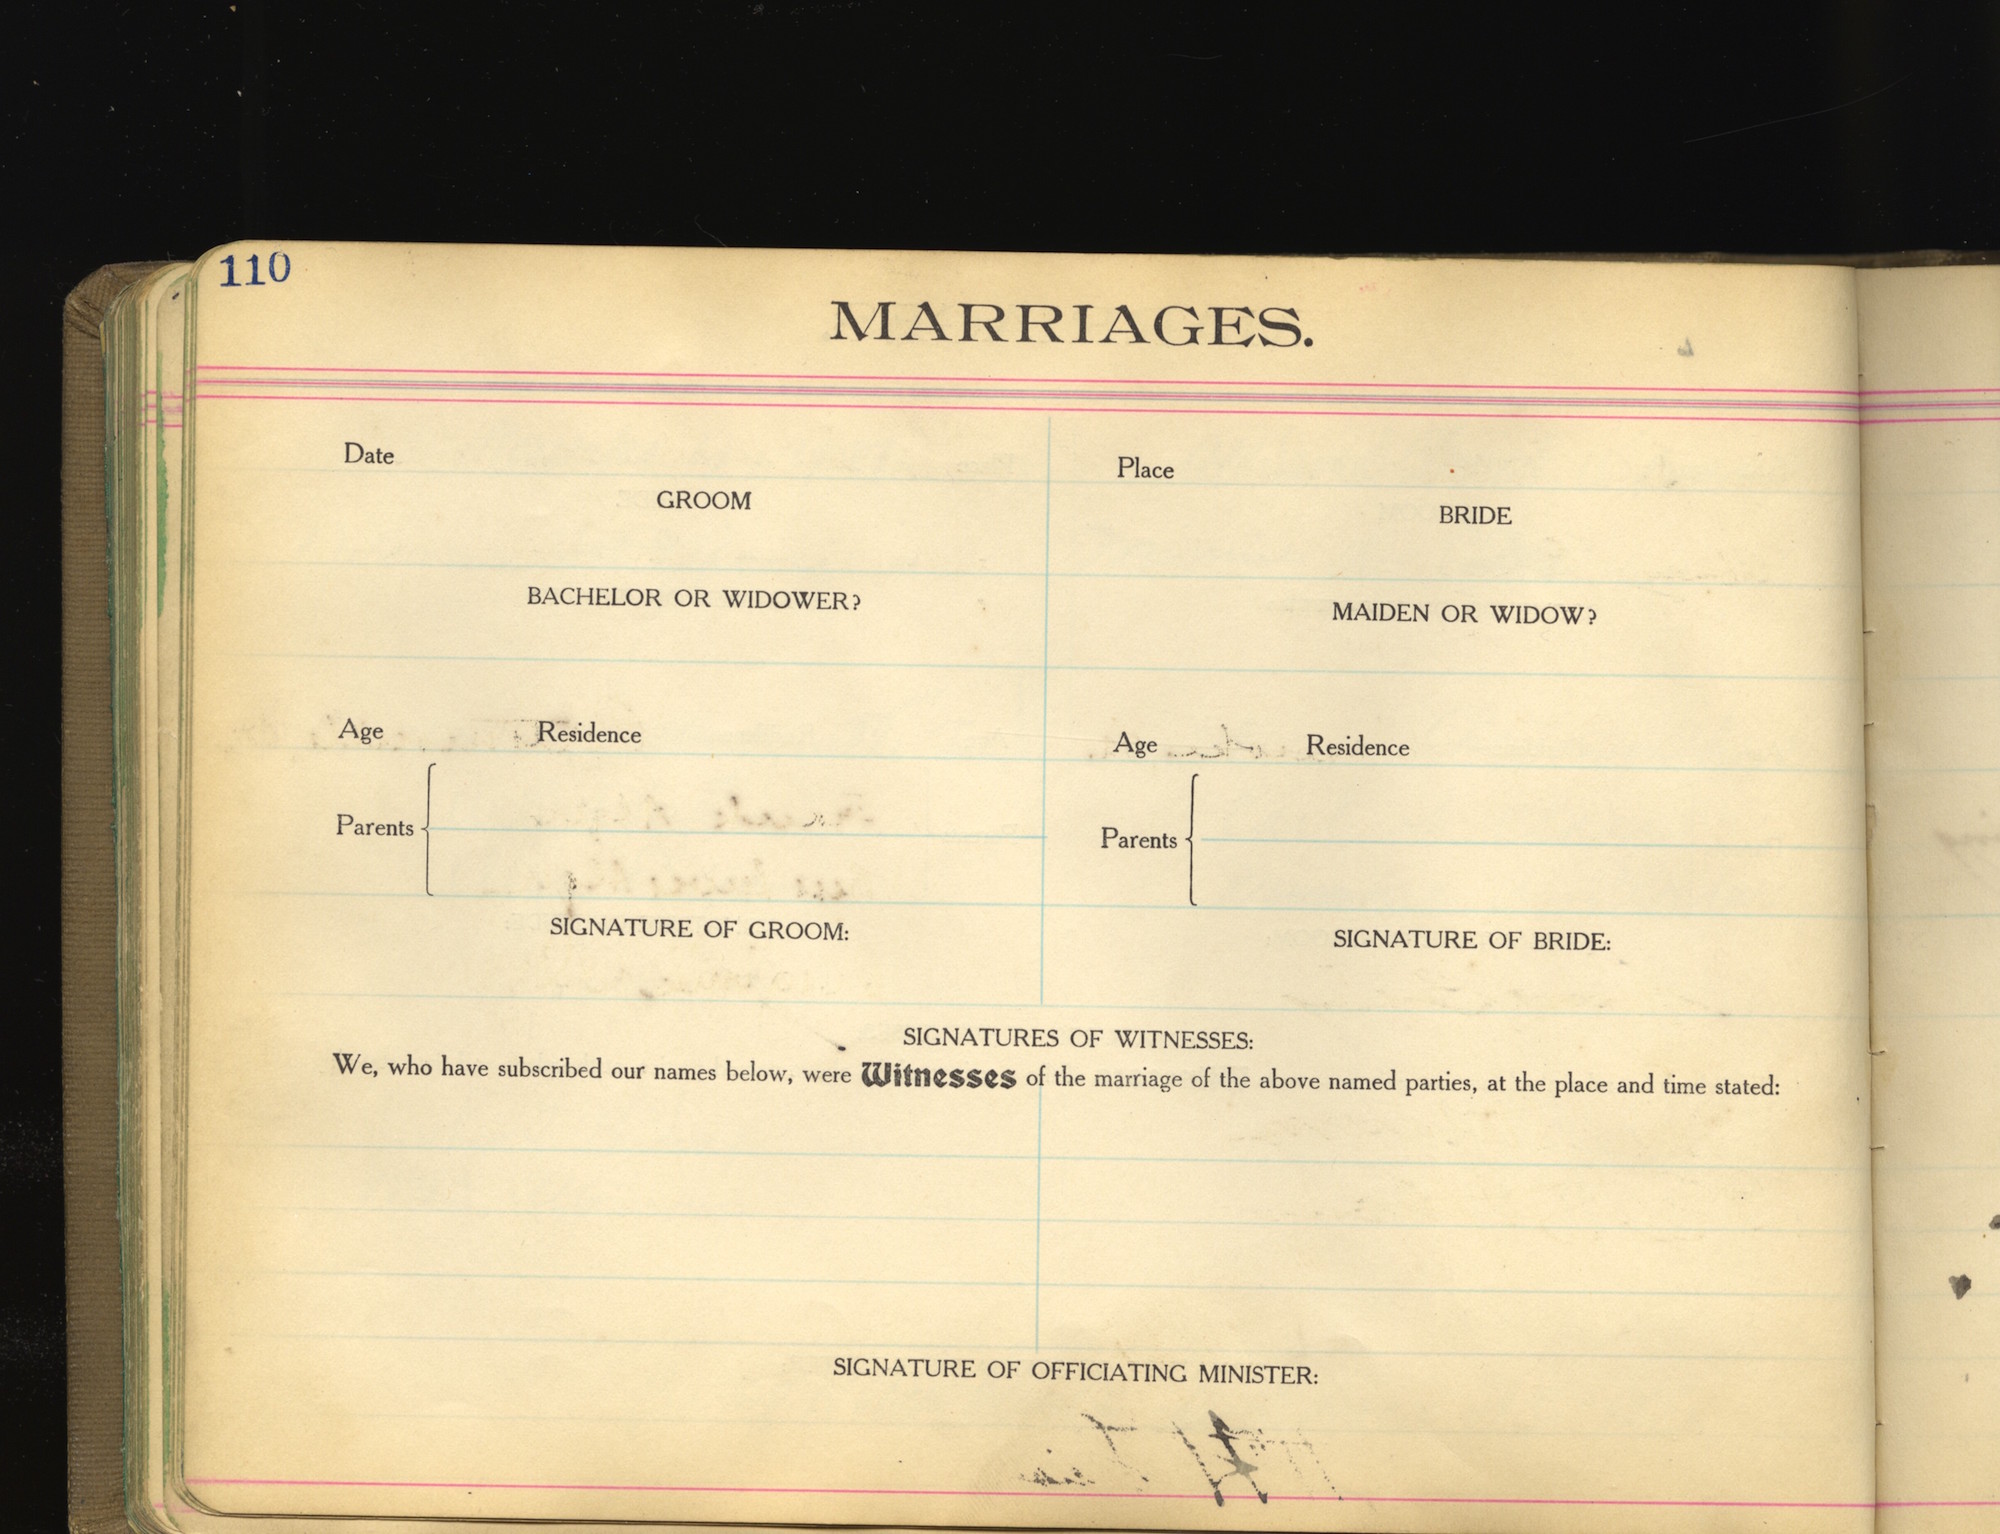 110
MARRIAGES.
Date
Place
GROOM
BRIDE
BACHELOR OR WIDOWER?
MAIDEN OR WIDOW?
Age Residence
Age Residence
Parents
Parents
SIGNATURE OF GROOM:
SIGNATURE OF BRIDE:
SIGNATURES OF WITNESSES:
We, who have subscribed our names below, were Witnesses of the marriage of the above named parties, at the place and time stated:
SIGNATURE OF OFFICIATING MINISTER: